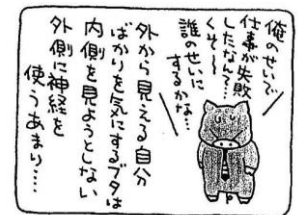 俺のせいで
仕事が失敗
したなんて…
くそ〜
誰のせいに
するかな…
外から見える自分
ばかりを気にするブタは
内側を見ようとしない
外側に神経を
使うあまり……